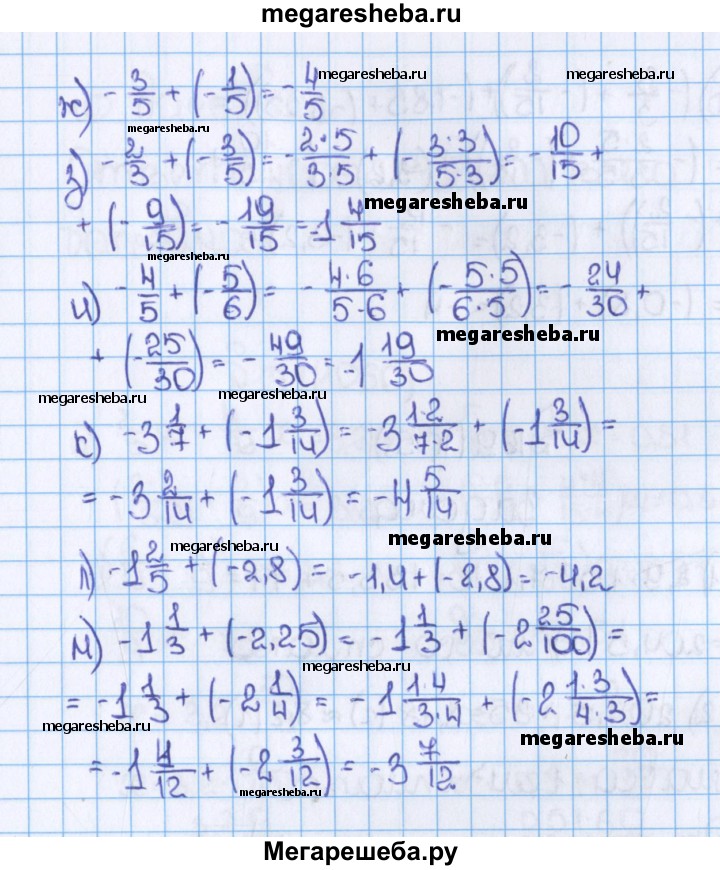 megaresheba.ru
ж) -3/5 + (-1/5) = -4/5 megaresheba.ru megaresheba.ru
megaresheba.ru
з) -2/3 + (-3/5) = -2·5/3·5 + (-3·3/5·3) = -10/15 +
megaresheba.ru
+ (-9/15) = -19/15 = -1 4/15
megaresheba.ru
и) -4/5 + (-5/6) = -4·6/5·6 + (-5·5/6·5) = -24/30 +
megaresheba.ru
+ (-25/30) = -49/30 = -1 19/30
megaresheba.ru megaresheba.ru
к) -3 1/7 + (-1 3/14) = -3 1·2/7·2 + (-1 3/14) =
= -3 2/14 + (-1 3/14) = -4 5/14
megaresheba.ru megaresheba.ru
л) -1 2/5 + (-2,8) = -1,4 + (-2,8) = -4,2
м) -1 1/3 + (-2,25) = -1 1/3 + (-2 25/100) =
megaresheba.ru
= -1 1/3 + (-2 1/4) = -1 1·4/3·4 + (-2 1·3/4·3) =
megaresheba.ru megaresheba.ru
= -1 4/12 + (-2 3/12) = -3 7/12
megaresheba.ru
Мегарешеба.ру